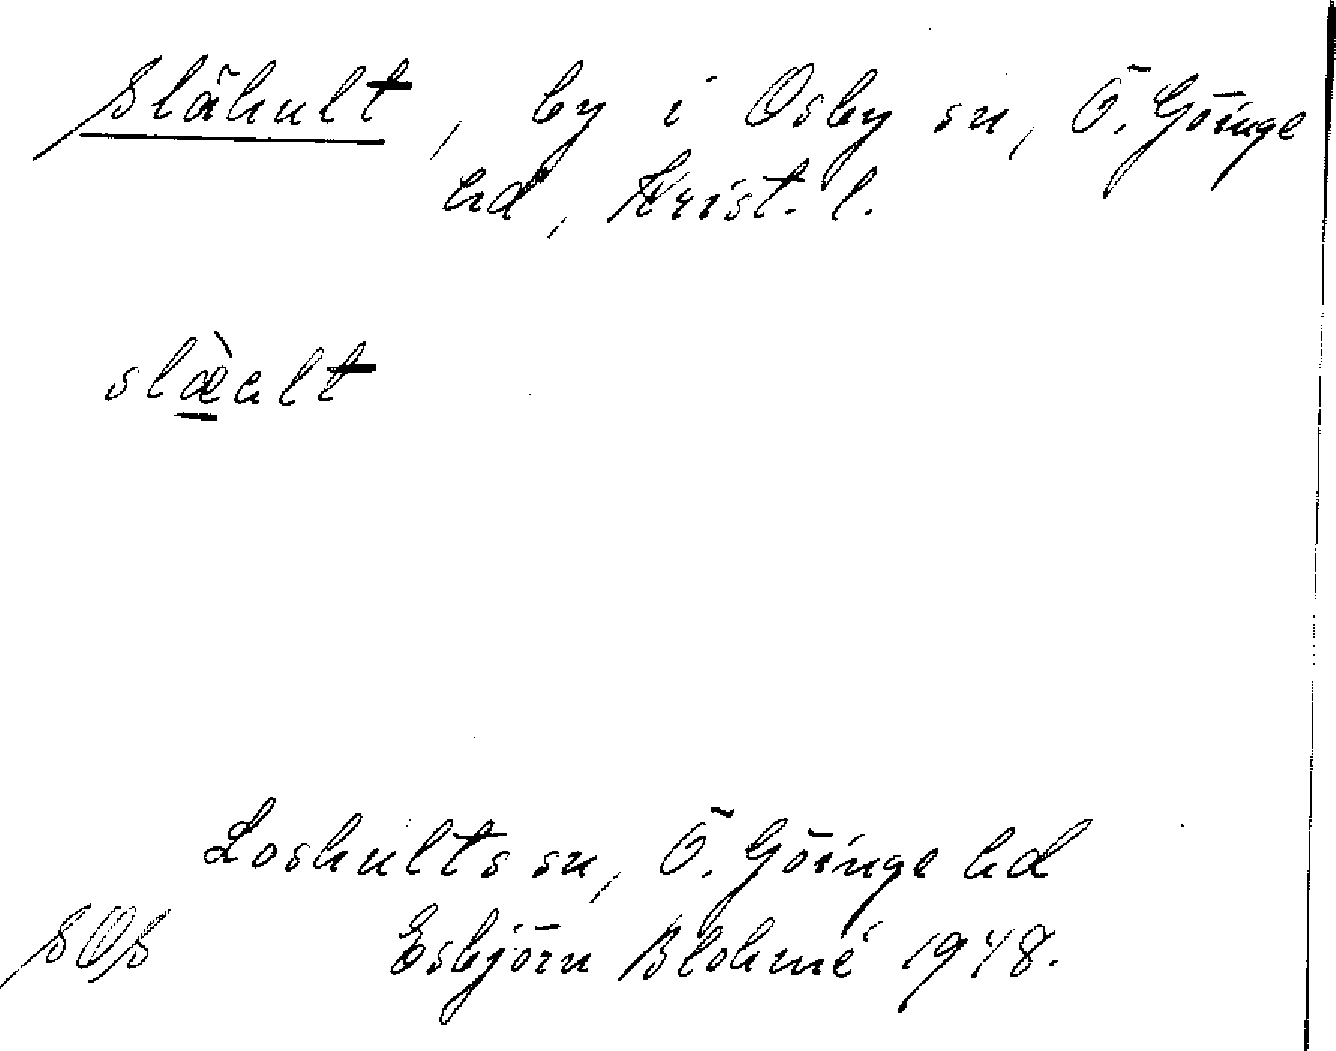 Slähult, by i Osby sn, Ö. Göinge
hd, Krist. l.
slæ̀alt
Loshults sn, Ö. Göinge hd
SOS Esbjörn Blohmé 1948.